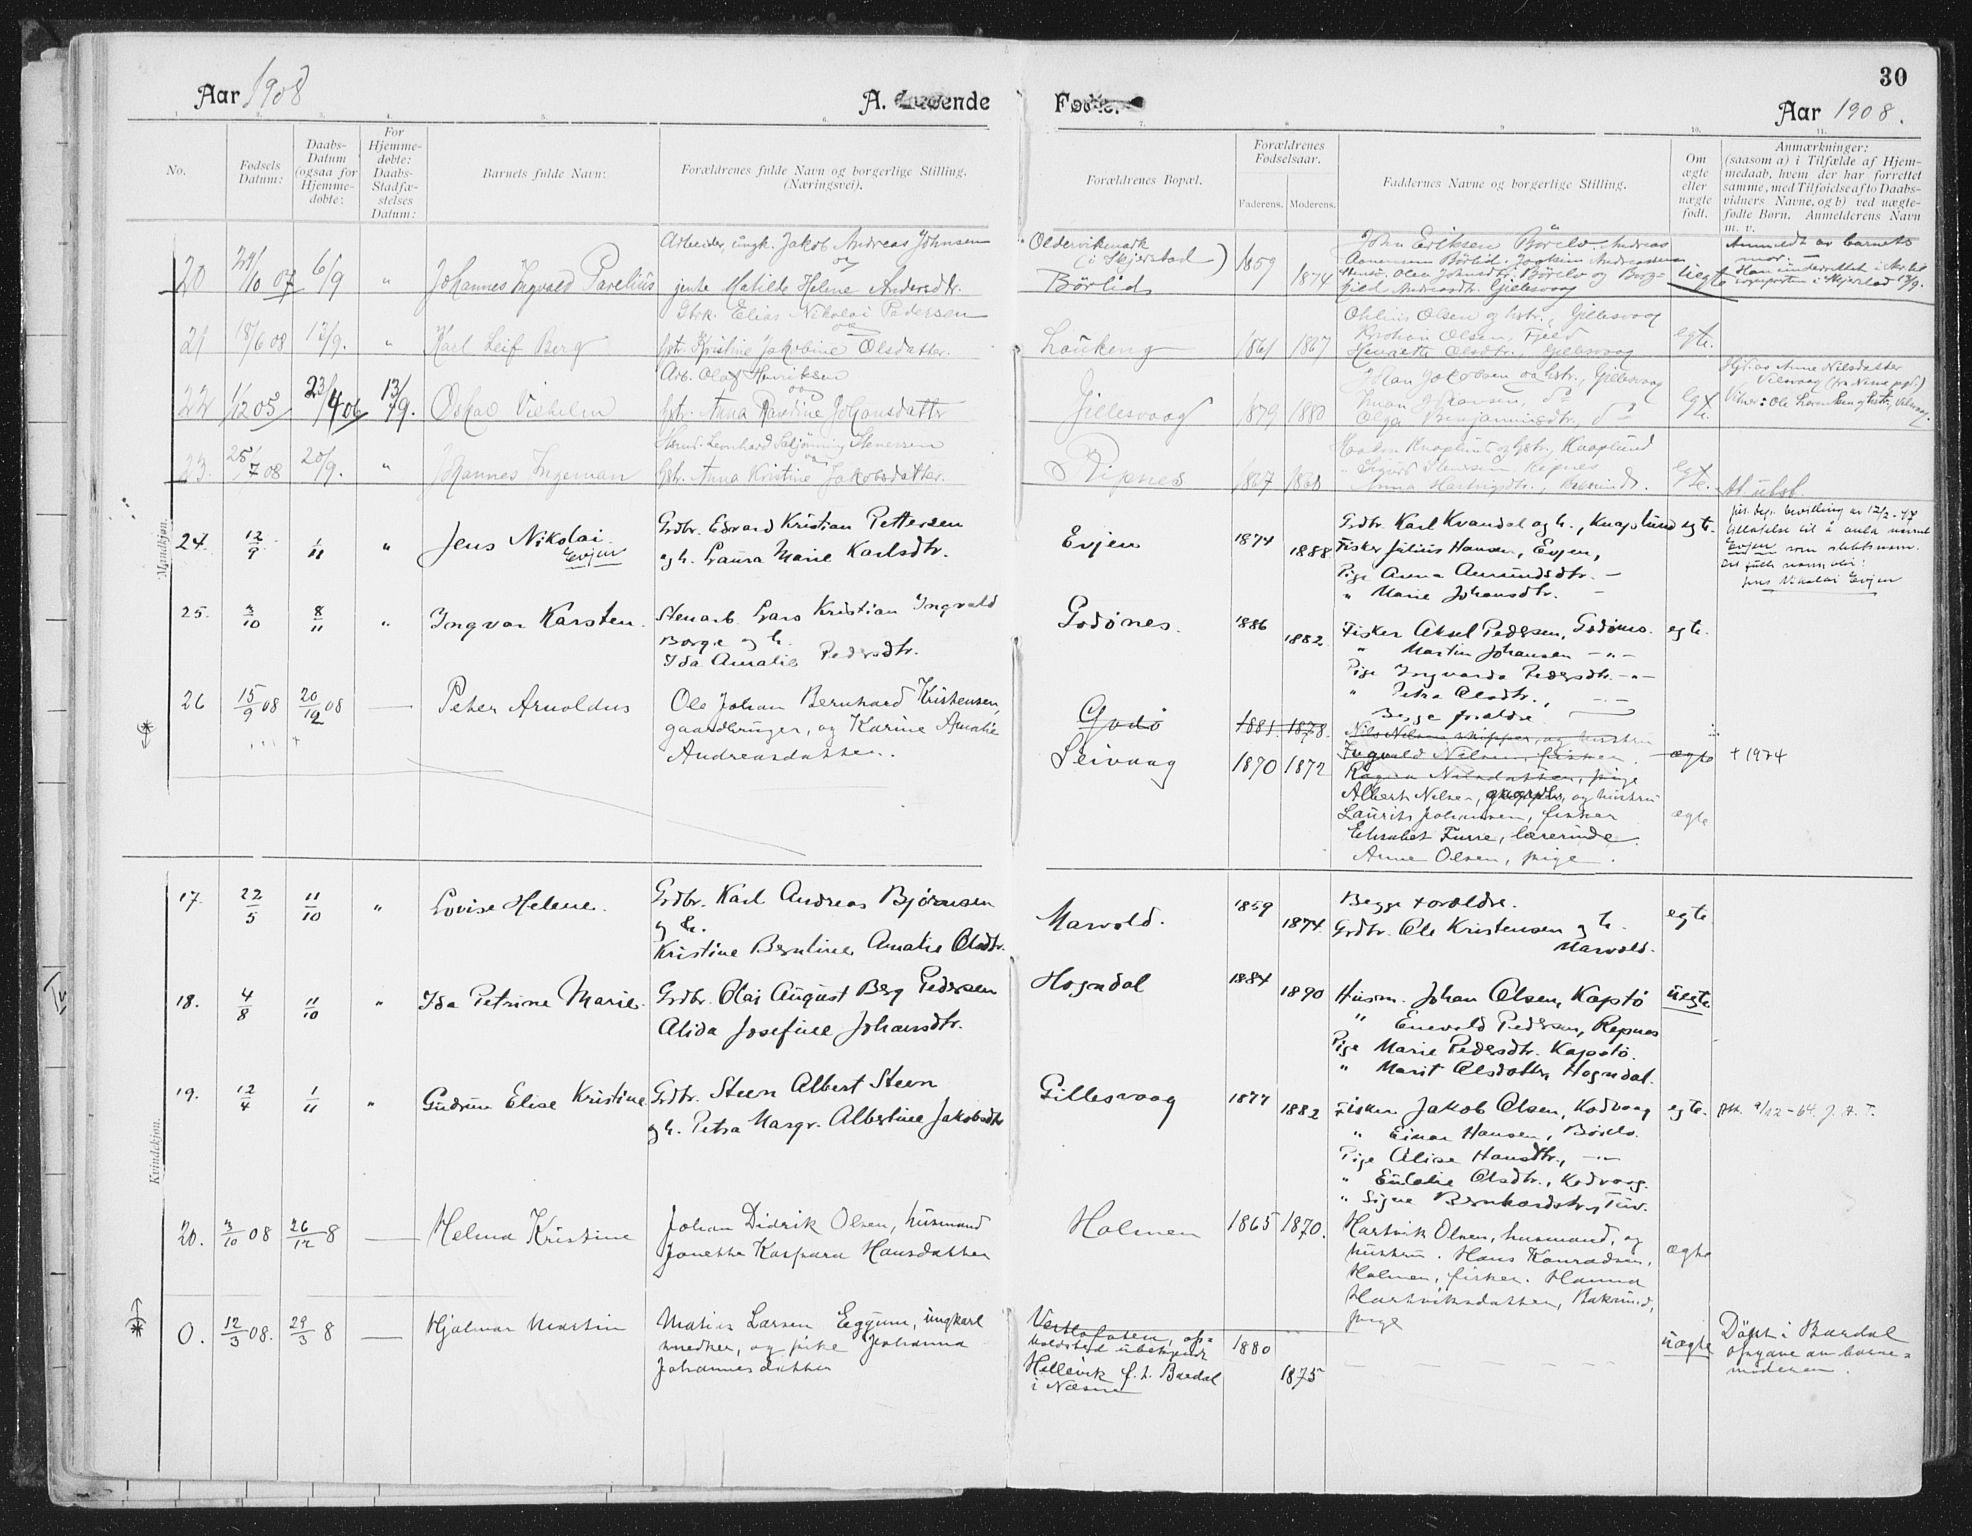 Aar 1908
A. Levende
Fødte.
Aar 1908.
30
1. 2. 3. 4. 5. 6. 7. 8. 9. 10. 11.
No.
Fødsels Datum:
Daabs-Datum (ogsaa for Hjemme-døbte:
For Hjemme-døbte: Daabs-Stadfæ-stelses Datum:
Barnets fulde Navn:
Forældrenes fulde Navn og borgerlige Stilling.
(Næringsvei).
Forældrenes Bopæl.
Forældrenes Fødselsaar.
Faderens. Moderens.
Faddernes Navne og borgerlige Stilling.
Om ægte eller uægte født.
Anmærkninger:
(saasom a) i Tilfælde af Hjem-
medaab, hvem der har forrettet
samme, med Tilføielse af to Daabs-
vidners Navne, og b) ved uægte-
fødte Børn. Anmelderens Navn
m. v.
Mandkjøn.
20 29/10 07 6/9 " Johannes Ingvald Parelius
Arbeider, ungk. Jakob Andreas Johnsen
og
jente Matilde Helene Andersdtr.
Oldervikmark
(i Skjerstad)
Børlid
1859 1874
John Eriksen Børelv, Andreas
Børlid. Joakim Andreassen
Olea Johnsdtr. Børelv og Borg-
hild Andreasdtr. Gillesvaag
uegte
Anmeldt av barnets
mor. —
21 18/6 08 13/9. " Karl Leif Berg
Gbrk. Elias Nikolai Pedersen
og
hstr. Kristine Jakobine Olsdatter.
Løukeng 1861 1867
Olsen og hstr., Gillesvaag
Olsen, Fjeld
Henriette Olsdtr., Gillesvaag
egte.
22 1/12 05 23/4 06 13/9. Oskar Vilhelm
Arb. Olaf Henriksen
og
hstr. Anna Johansdatter
Gillesvaag 1879 1880
Johan Jakobsen og hstr., Gillesvaag
Olga Benjaminsdtr. do
egte.
Hjd. av Anne Nilsdatter
23. 25/7 08 20/9. " Johannes Ingeman
Leonhard Stenersen
og
hstr. Anna Kristine Jakobsdatter.
Ripnes 1867 1868
Haakon Knaplund og hstr., Knaplund
Sigurd Stenersen, Ripnes
Anna Hartvigsdtr., Baksund.
egte.
24. 12/9 1/11 " Jens Nikolai
Evjen
Grdbr. Edvard Kristian Pettersen
og h. Laura Marie Karlsdtr.
Evjen 1874 1888
Grdbr. Karl Kvandal og h., Knaplund
Fisker Julius Hansen, Evjen,
Pige Anna Amundsdtr. —
" Marie Johansdtr. —
egte.
jus. dep. bevilling av 12/2-47
tillatelse til å anta navnet
Evjen som slektsnavn.
Det fulle navn, blir:
Jens Nikolai Evjen
25. 3/10 8/11 " Ingvar Karsten.
Stenarb. Lars Kristian Ingvald
Borge og h.
Ida Amalie Pedersdtr.
Godønes. 1886 1882
Fisker Aksel Pedersen, Godønes.
" Martin Johansen — " —
Pige Ingvarda Pedersdtr. — " —
" Petra Olsdtr., — " —
Begge forældre.
egte.
26 15/9 08 20/12 08 — Peter Arnoldus
Ole Johan Bernhard Kristensen,
gaardbruger, og Karine Amalie
Andreasdatter.
Godø 1881. 1878.
Leivaag 1870 1872
Nils Nilsen skipper, og hustru
Ingvald Nilsen, fisker.
Ragna Nilsdatter, pige
Albert Nilsen, gaardbr, og hustru
Laurits Johansen, fisker
Elisabet Furre, lærerinde
Anne Olsen, pige.
ægte
ægte
+ 1974
Kvindekjøn.
17. 22/5 11/10 " Lovise Helene.
Grdbr. Karl Andreas Bjørnsen
og h.
Kristine Berntine Amalie Olsdtr.
Marvold. 1859 1874
Begge forældre.
Grdbr. Ole Kristensen og h.
Marvold.
egte.
18. 4/8 11/10 " Ida Petrine Marie.
Grdbr. Olai August Berg Pedersen
Alida Josefine Johansdtr.
Hogndal 1884 1890
Husm. Johan Olsen, Kapstø
" Enevold Pedersen, Repnes
Pige Marie Pedersdtr. Kapstø.
" Marit Olsdatter, Hogndal.
uegte
19. 12/4 1/11 " Gudrun Elise Kristine
Grdbr. Steen Albert Steen
og h. Petra Margr. Albertine Jakobsdtr
Gillesvaag 1877 1882
Fisker Jakob Olsen, Kodvaag
" Einar Hansen, Børelv.
Pige Alise Hansdtr., — " —
" Eulalie Olsdtr., Kodvaag.
" Signe Bernhardsdtr, Tuv.
egte.
Att. 9/12-64. J. A. T.
20. 3/10 08 26/12 8 — Helma Kristine
Johan Didrik Olsen, husmand
Janette Kaspara Hansdatter
Holmen 1865 1870.
Hartvik Olsen, husmand, og
hustru. Hans Konradsen,
Holmen, fisker. Hanna
Hartviksdatter, Baksund,
pige
ægte
0. 12/3 08. 29/3 8 — Hjalmar Martin
Matias Larsen Eggum, ungkarl
snedker, og pike Johanna
Johannesdatter
Vestlofoten, op-
holdssted ubekjendt
Hellevik f. t. Bardal
i Næsne
1880 1875
uægte
Døpt i Bardal
opgave av barne-
moderen.